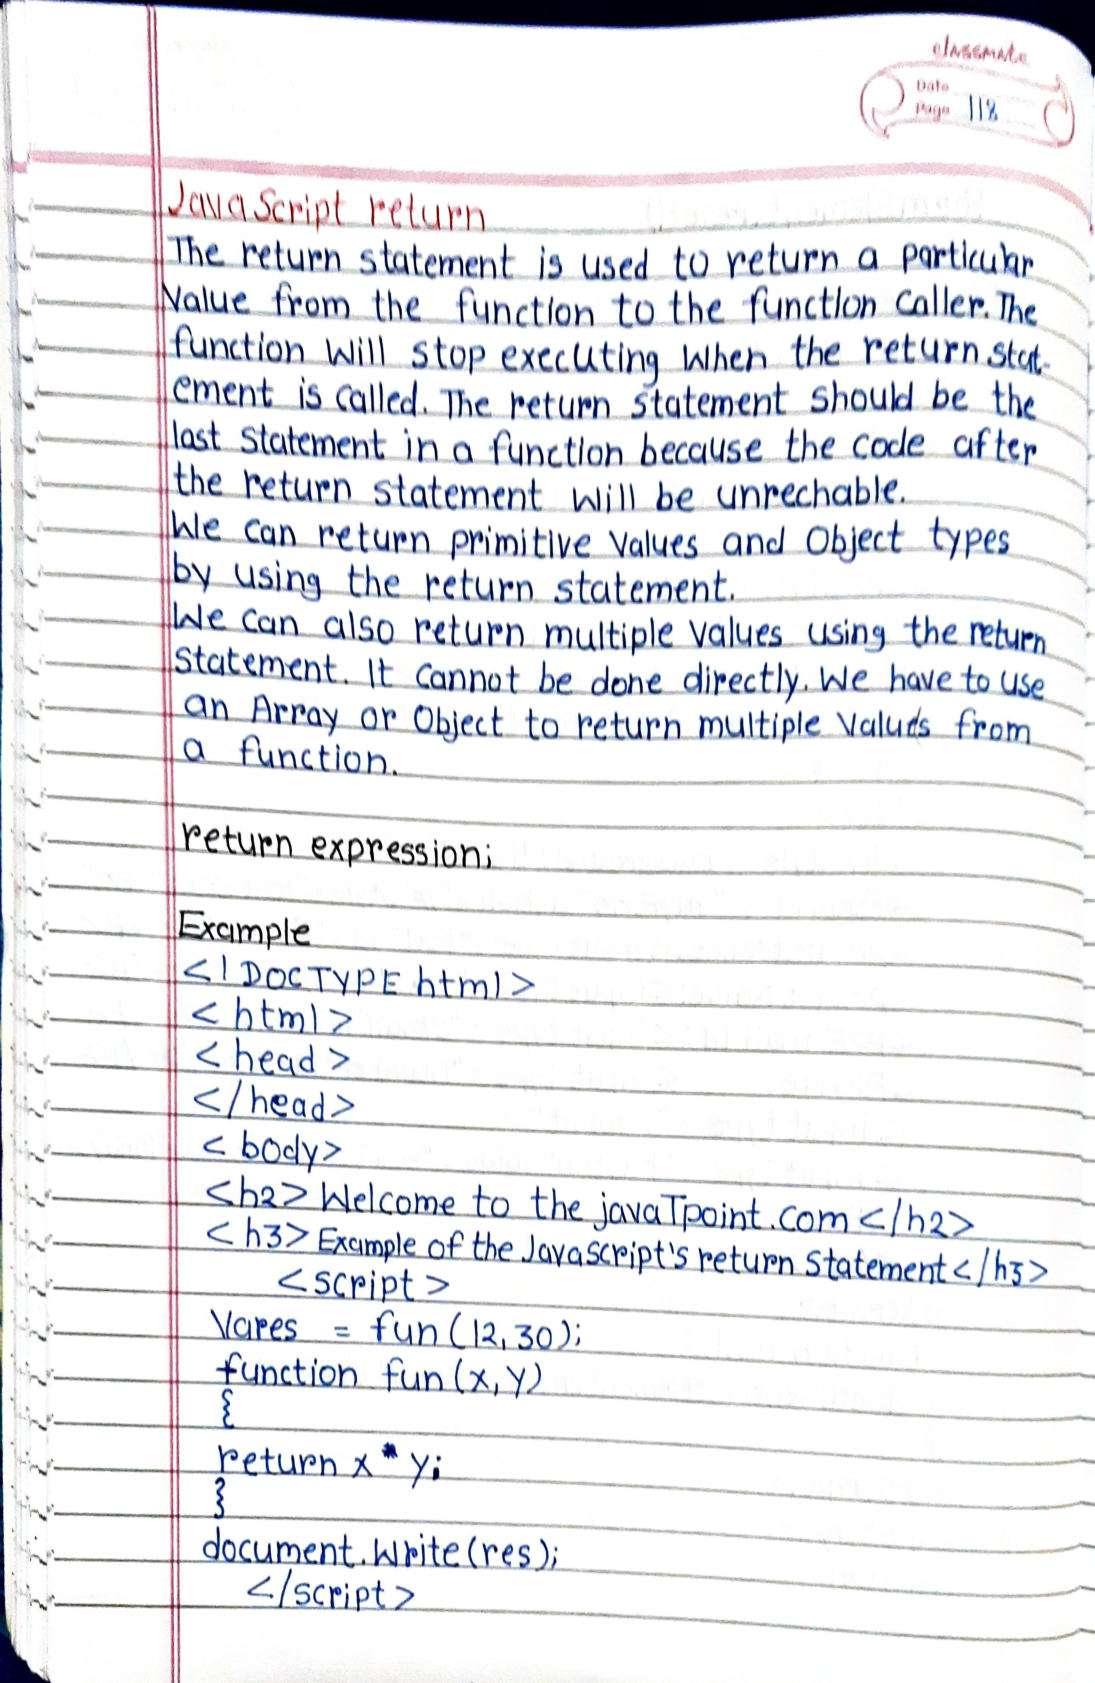 classmate
Date
Page 118
JavaScript return
The return statement is used to return a particular
Value from the function to the function caller. The
function will stop executing when the return stat-
ement is called. The return statement should be the
last statement in a function because the code after
the return statement will be unrechable.
We can return primitive values and Object types
by using the return statement.
We can also return multiple values using the return
statement. It cannot be done directly. We have to use
an Array or Object to return multiple values from
a function.
return expression;
Example
<!DOCTYPE html>
<html>
<head>
</head>
<body>
<h2> Welcome to the javaTpoint.com </h2>
<h3> Example of the JavaScript's return Statement </h3>
<script>
Vares = fun (12, 30);
function fun (x, y)
{
return x * y;
}
document.write(res);
</script>